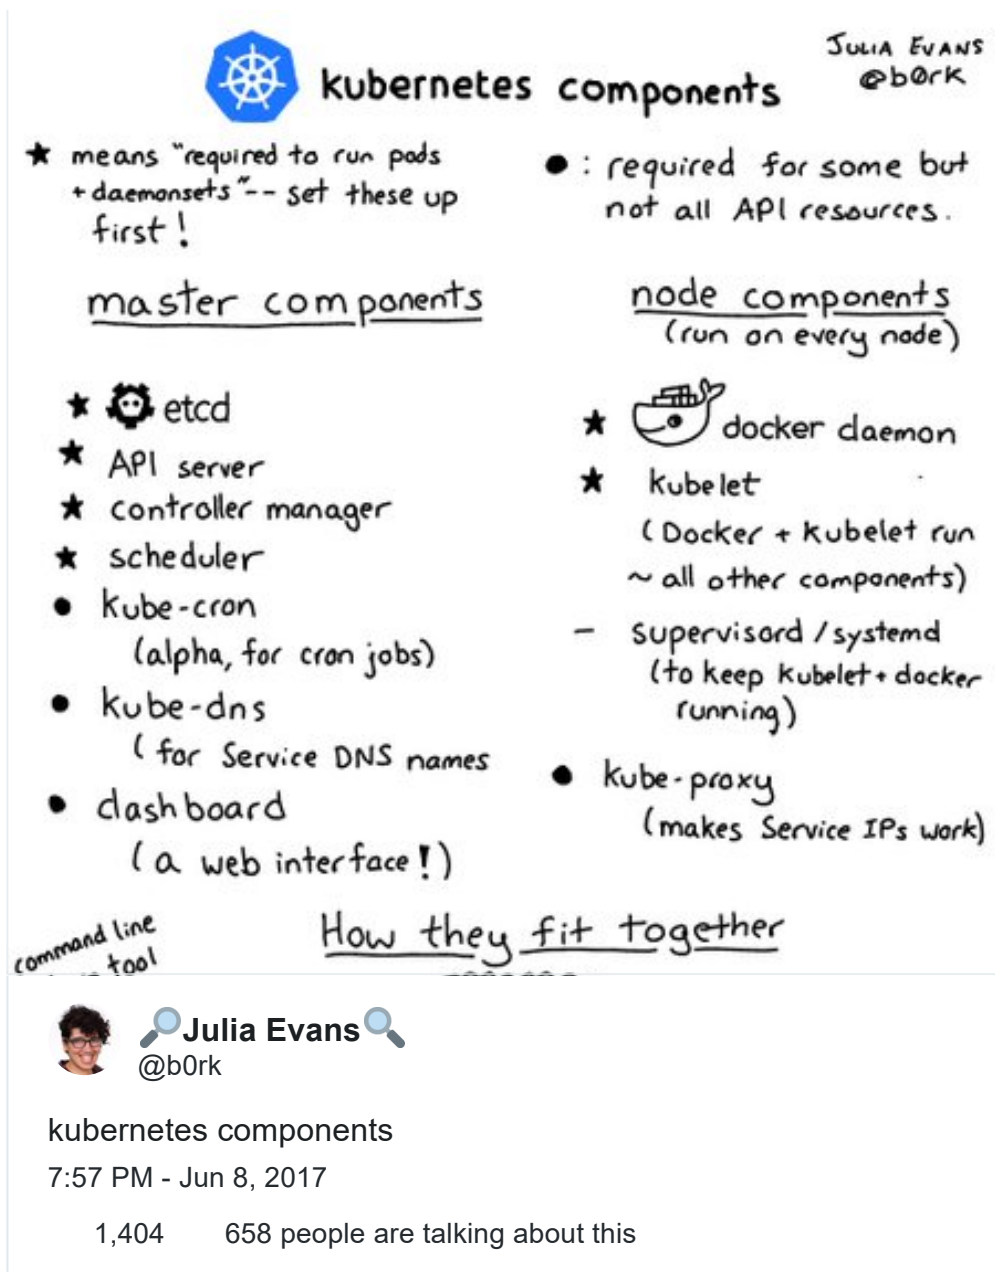 kubernetes components
JULIA EVANS
@b0rk
★ means "required to run pods
+ daemonsets" -- set these up
first!
● : required for some but
not all API resources.
master components
★ etcd
★ API server
★ controller manager
★ scheduler
● kube-cron
(alpha, for cron jobs)
● kube-dns
( for Service DNS names
● dashboard
( a web interface! )
node components
(run on every node)
★ docker daemon
★ kubelet
(Docker + kubelet run
~ all other components)
- supervisord / systemd
(to keep kubelet + docker
running)
● kube-proxy
(makes Service IPs work)
command line
tool
How they fit together
🔎Julia Evans🔍
@b0rk
kubernetes components
7:57 PM - Jun 8, 2017
1,404 658 people are talking about this